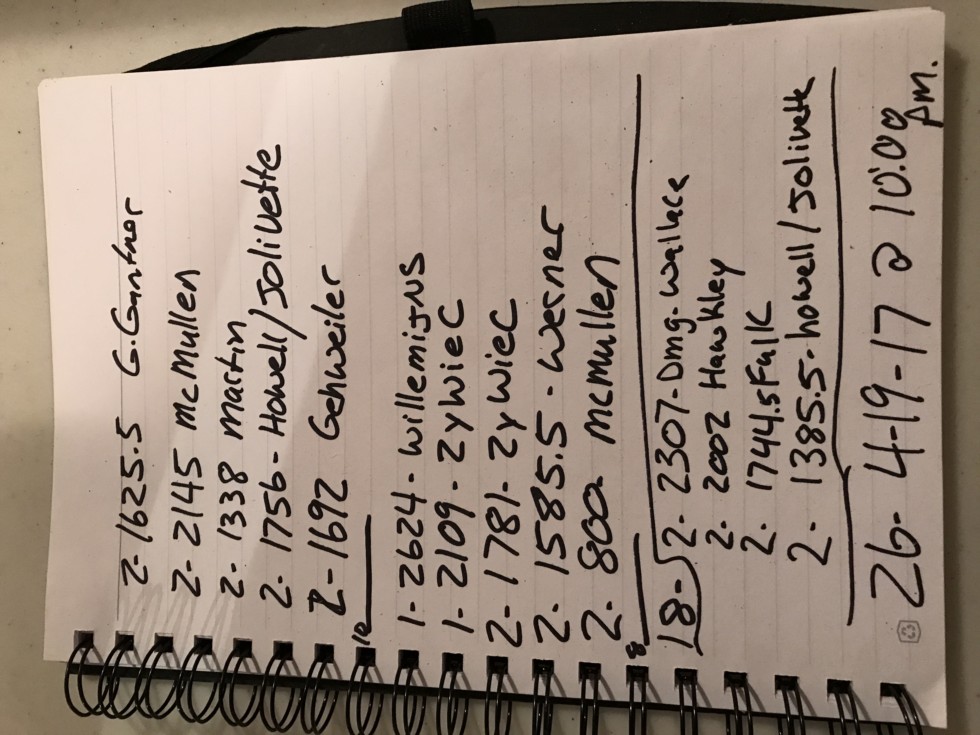 2- 1625.5 G. Gantnor
2- 2145 McMullen
2- 1338 Martin
2- 1756 - Howell/Jolivette
2- 1692 Gehweiler
10
1- 2624 - Willemijns
1- 2109 - Zywiec
2- 1781 - Zywiec
2- 1585.5 - Wesner
2- 800 McMullen
8
18- 2- 2307 - Dmg. Wallace
2- 2002 Hawkley
2- 1744.5 Falk
2- 1385.5 - howell/Jolivette
26- 4-19-17 @ 10:00 pm.